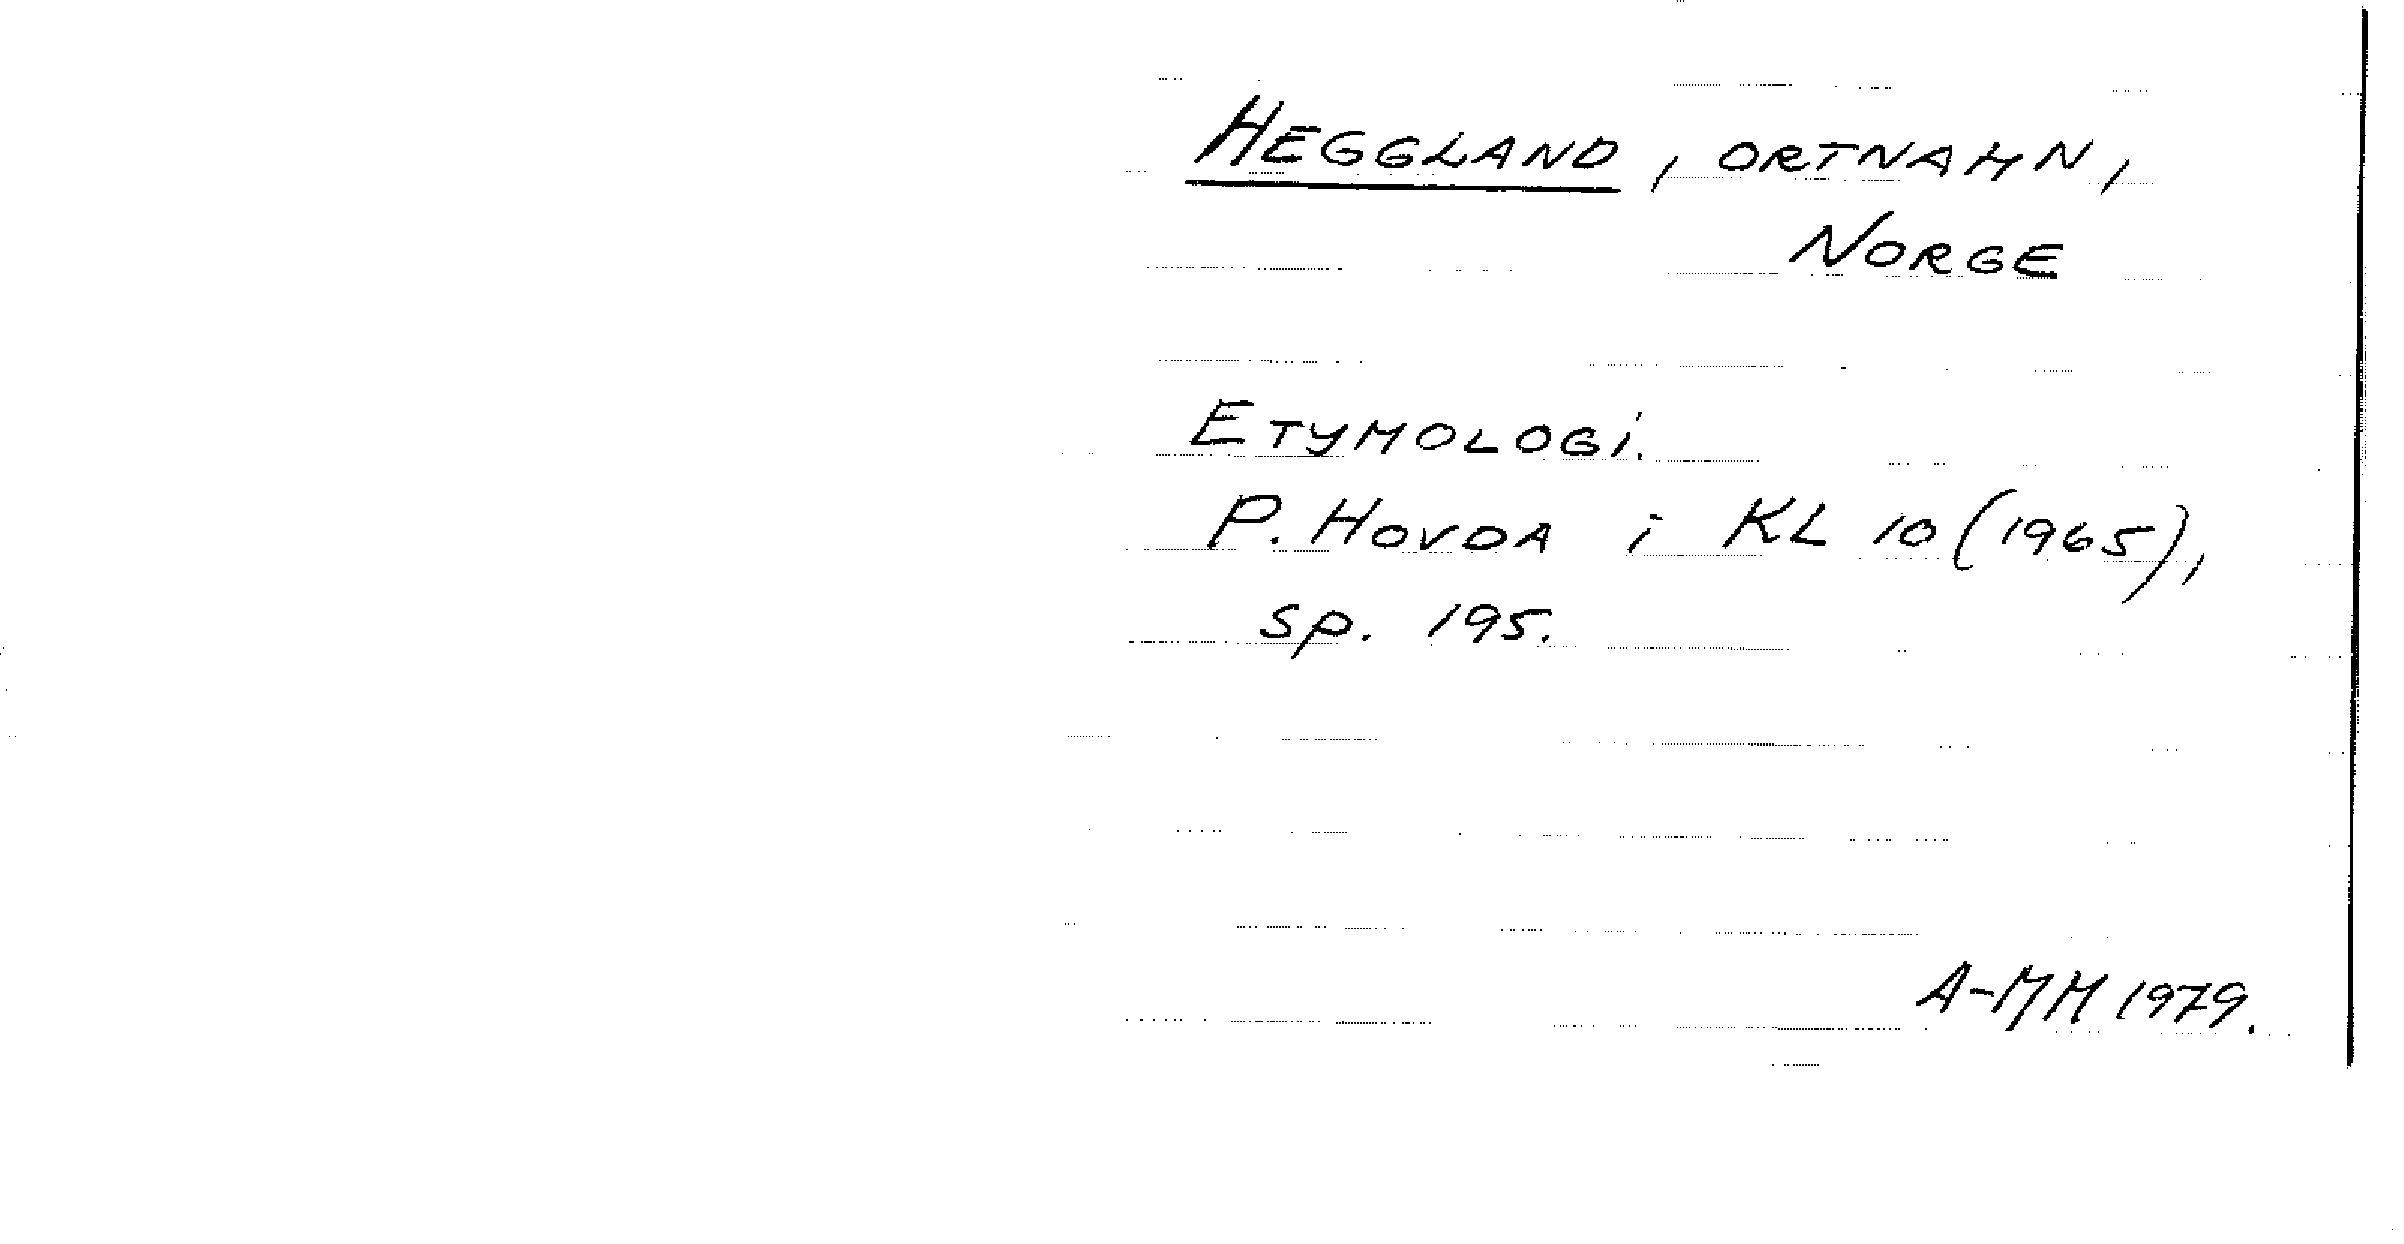 HEGGLAND, ORTNAMN,
NORGE
ETYMOLOGI.
P. HOVDA i KL 10 (1965),
sp. 195.
A-MM 1979.